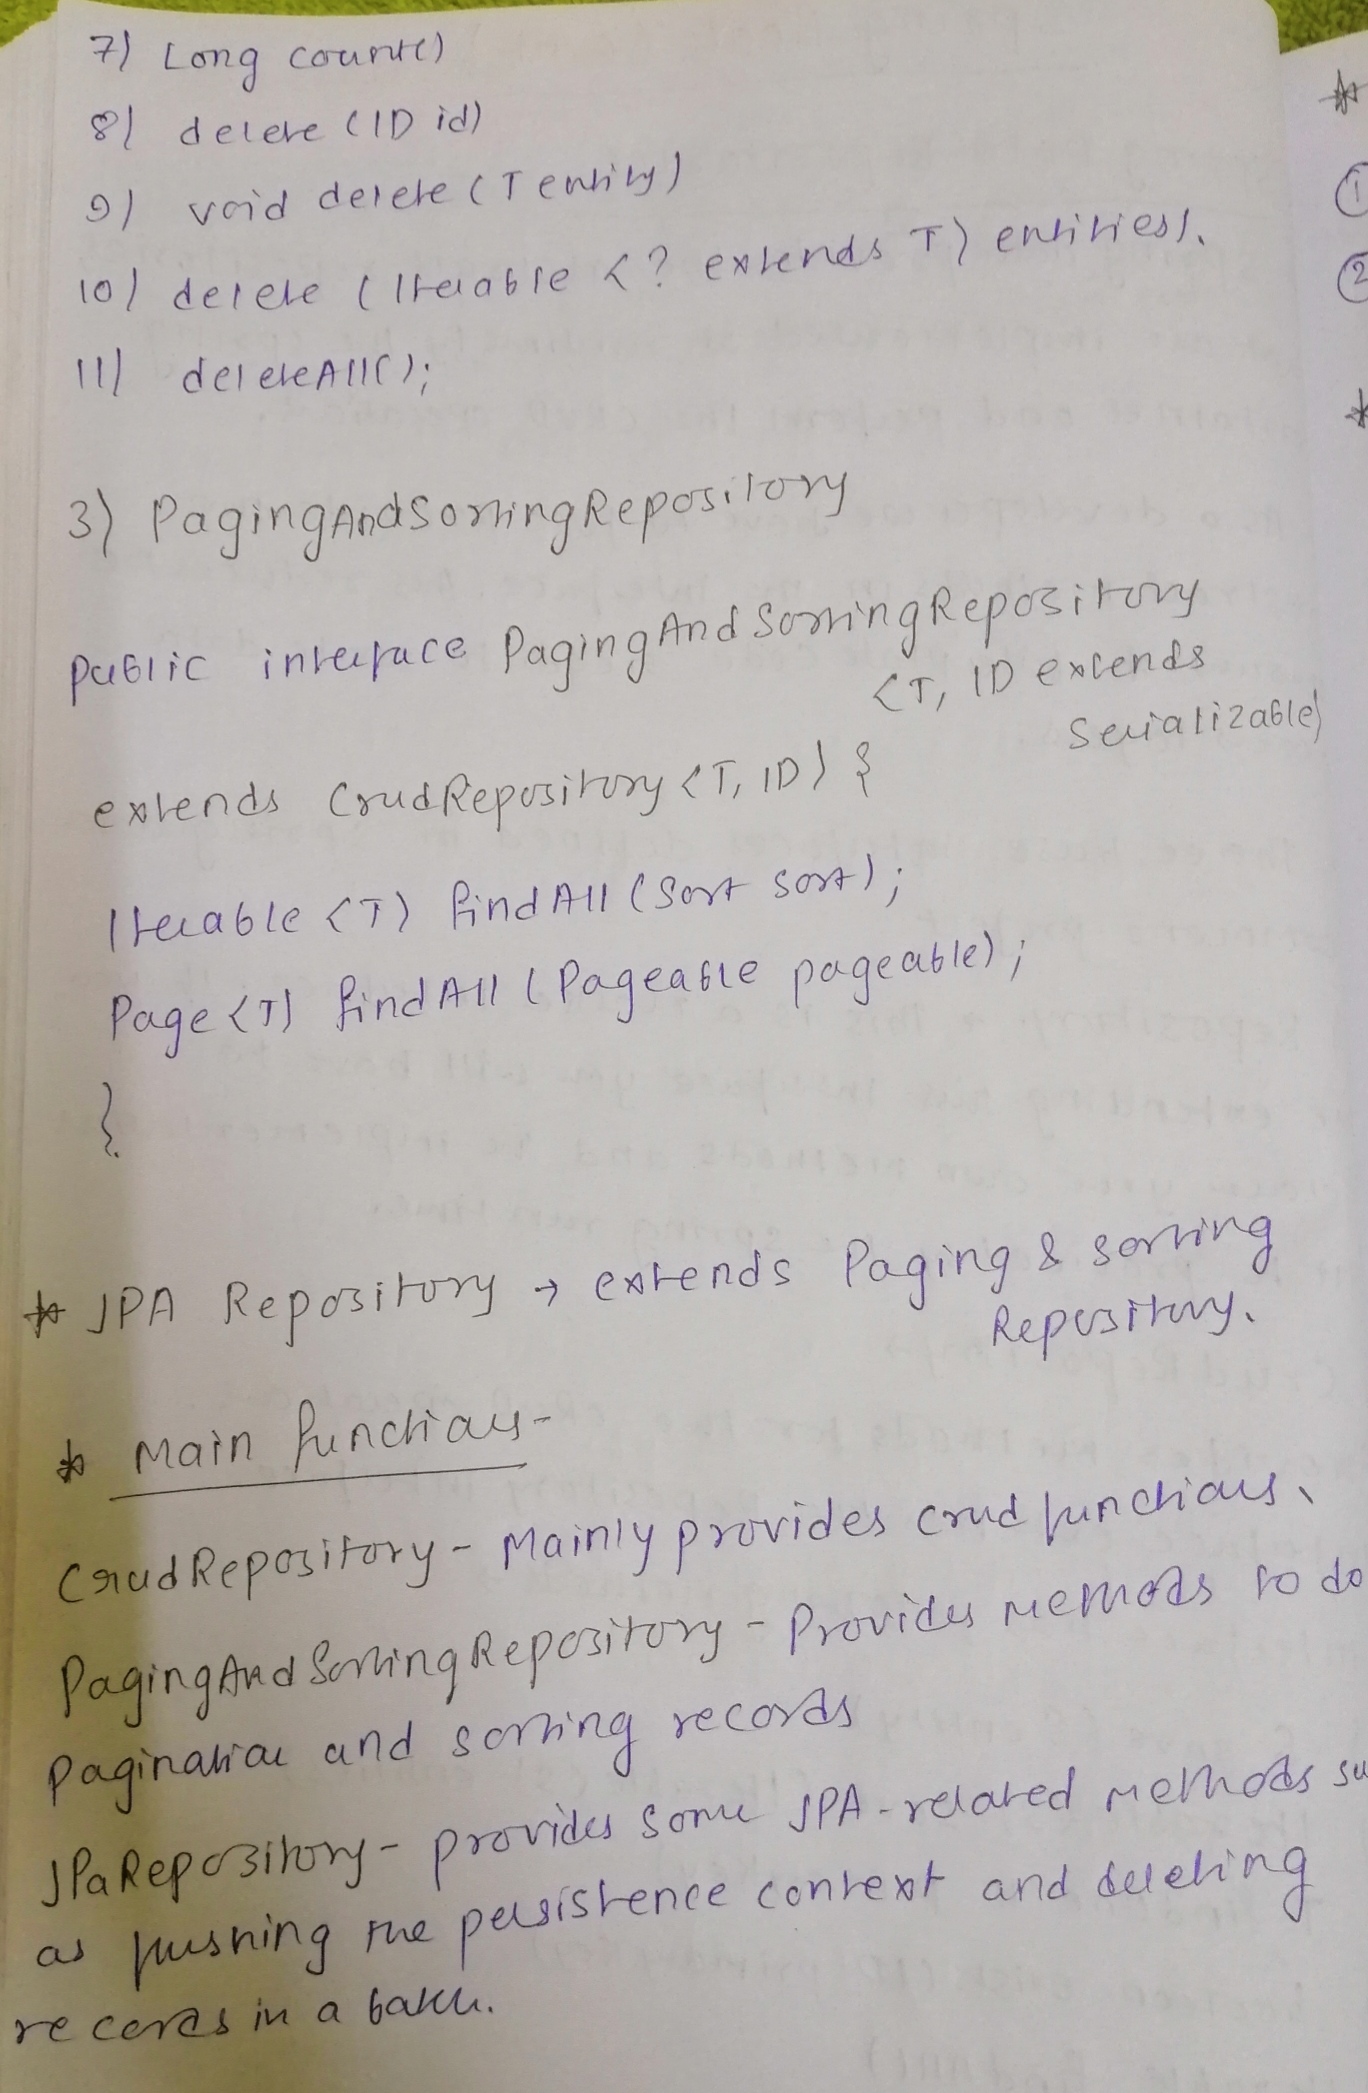 7) Long count()
8) delete (ID id)
9) void delete (T entity)
10) delete (Iterable <? extends T> entities).
11) deleteAll();
3) PagingAndSortingRepository
public interface PagingAndSortingRepository
<T, ID extends
Serializable>
extends CrudRepository <T, ID> {
Iterable <T> findAll (Sort sort);
Page <T> findAll (Pageable pageable);
}
* JPA Repository → extends Paging & sorting
Repository.
* Main functions-
CrudRepository - Mainly provides crud functions.
PagingAndSortingRepository - Provides methods to do
pagination and sorting records
JPaRepository - provides some JPA-related methods su
as flushing the persistence context and deleting
records in a batch.
*
1
2
*